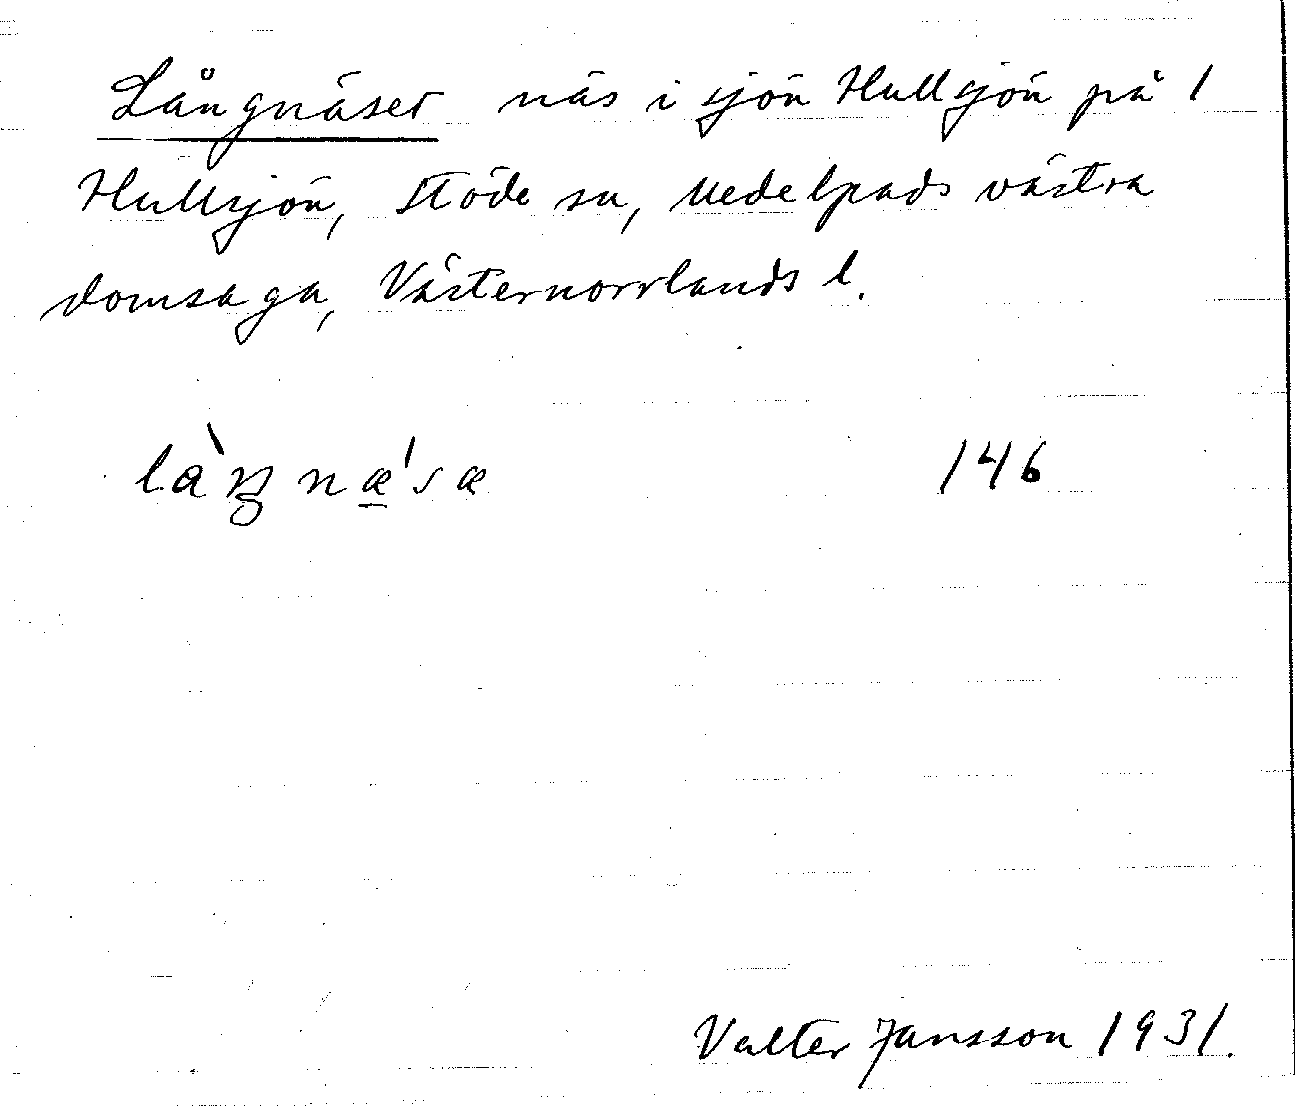 Långnäset näs i sjön Hullsjön på 1
Hullsjön, Stöde sn, Medelpads västra
domsaga, Västernorrlands l.
là̀ŋnæ̲'sæ 146
Valter Jansson 1931.